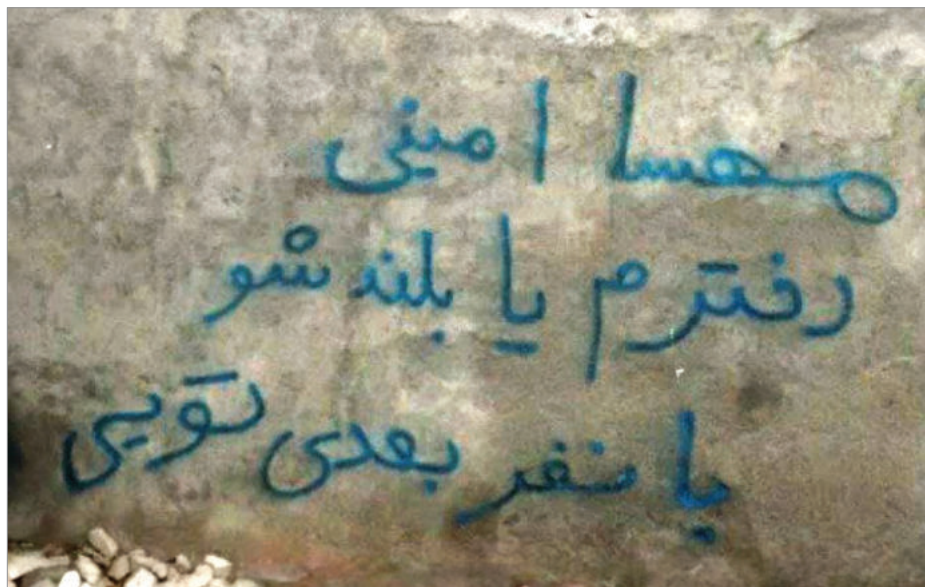 مهسا امینی
دخترم یا بلند شو
یا نفر بعدی تویی